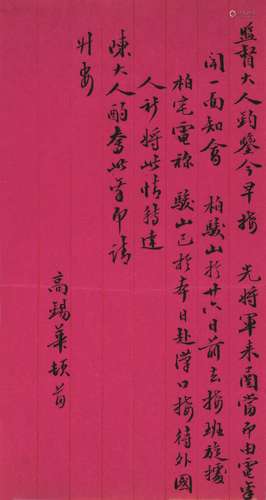 監督大人鈞鑒今早接 光將軍來函當即由電傳
聞一面知會 柏駿山於廿六日前去接班旋據
柏宅電稱 駿山已於本日赴漢口接待外國
人祈將此情轉達
陳大人酌奪此肅即請
升安
高錫華頓首